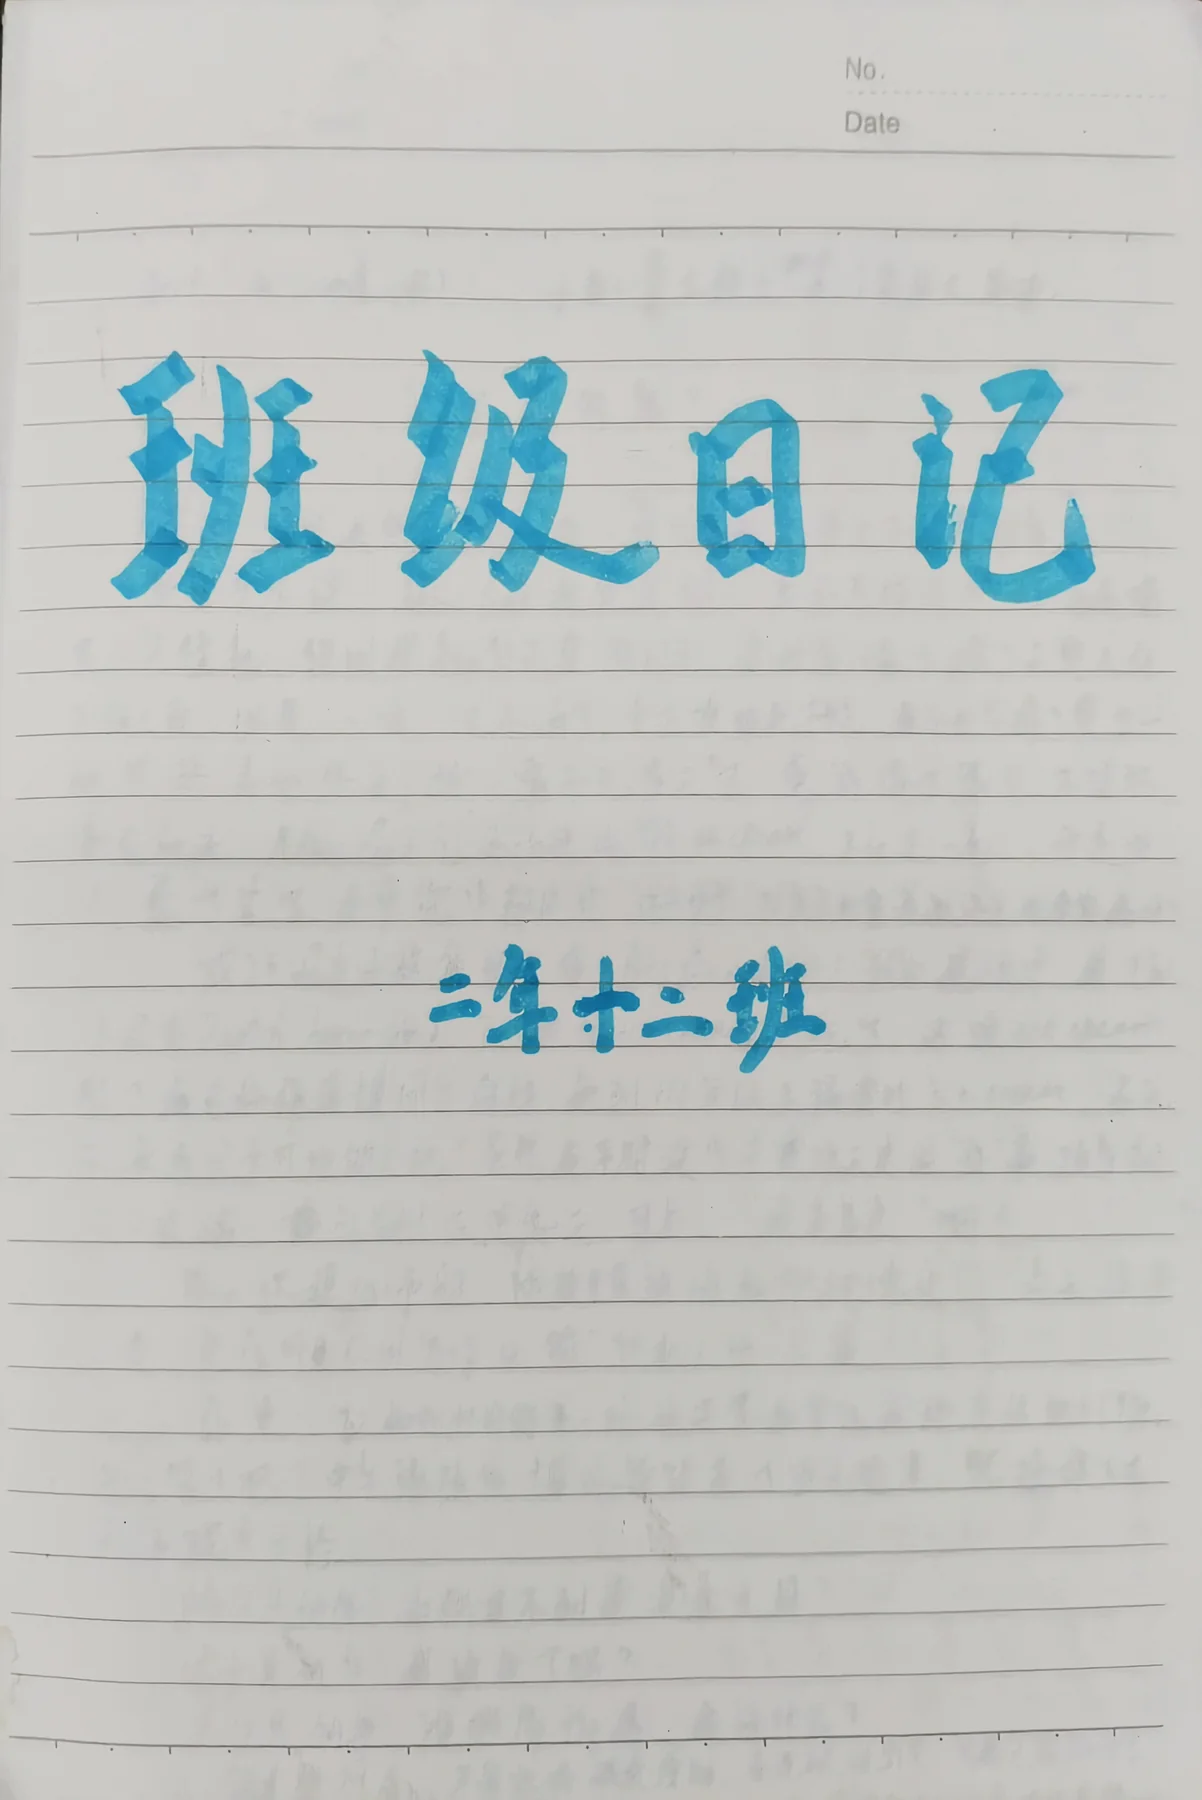 No.
Date
班级日记
二年十二班